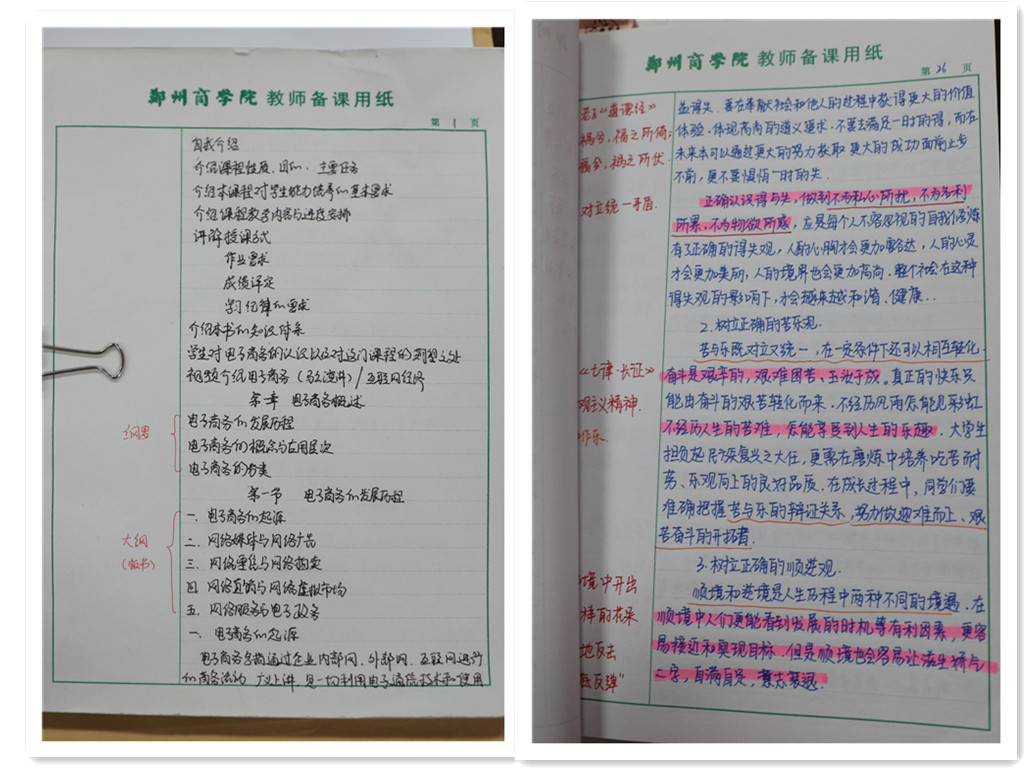 郑州商学院 教师备课用纸
第 1 页
自我介绍
介绍课程性质、目的、主要任务
介绍本课程对学生能力培养的基本要求
介绍课程教学内容与进度安排
讲解授课方式
作业要求
成绩评定
学习纪律的要求
介绍本书的知识体系
学生对电子商务的认识以及对这门课程的期望之处
视频介绍电子商务(马云演讲)/互联网经济
第一章 电子商务概述
电子商务的发展历程
电子商务的概念与应用层次
电子商务的分类
第一节 电子商务的发展历程
大纲
(板书)
一、电子商务的起源
二、网络媒体与网络广告
三、网络零售与网络拍卖
四、网络直销与网络虚拟市场
五、网络服务与电子政务
一、电子商务的起源
电子商务是指通过企业内部网、外部网、互联网进行
的商务活动 广义上讲,是一切利用电子通信技术和使用
郑州商学院 教师备课用纸
第 26 页
老子《道德经》
祸兮,福之所倚;
福兮,祸之所伏
对立统一矛盾.
《七律·长征》
观主义精神.
作乐.
境中开出
样的花朵
地反击
底反弹"
益得失、要在奉献社会和他人的过程中获得更大的价值
体验.体现高尚的道义要求.不要去满足一时的得,而在
未来本可以通过更大的努力获取更大的成功面前止步
不前,更不要惧怕一时的失.
正确认识得与失,做到不为私心所扰,不为名利
所累,不为物欲所惑,应是每个人不容忽视的自我修炼
有了正确的得失观,人的心胸才会更加豁达,人的心灵
才会更加美丽,人的境界也会更加高尚.整个社会在这种
得失观的影响下,才会越来越和谐、健康..
2.树立正确的苦乐观.
苦与乐既对立又统一,在一定条件下还可以相互转化.
奋斗是艰辛的,艰难困苦、玉汝于成.真正的快乐只
能由奋斗的艰苦转化而来.不经历风雨怎能见彩虹
不经历人生的苦难,怎能享受到人生的乐趣.大学生
担负起民族复兴之大任,更需在磨炼中培养吃苦耐
劳、乐观向上的良好品质.在成长过程中,同学们要
准确把握苦与乐的辩证关系,努力做迎难而上、艰
苦奋斗的开拓者.
3.树立正确的顺逆观.
顺境和逆境是人生历程中两种不同的境遇.在
顺境中人们更能看到发展的时机等有利因素,更容
易接近和实现目标.但是顺境也会容易让滋生骄与
二字,自满自足,意志衰退.